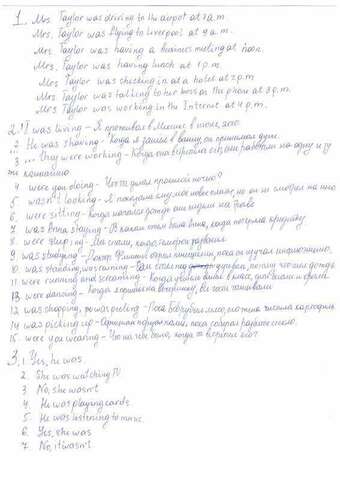 1. Mrs. Taylor was driving to the airpot at 7 a.m.
Mrs. Taylor was flying to Liverpool at 9 a.m.
Mrs. Taylor was having a business meeting at noon.
Mrs. Taylor was having lunch at 1 p.m.
Mrs Taylor was checking in at a hotel at 2 p.m
Mrs. Taylor was talking to her boss on the phone at 3 p.m.
Mrs Taylor was working in the Internet at 4 p.m.
2. 1. I was living - Я проживал в
2. He was shaving - Когда я зашел в ванну, он принимал душ.
3. ... They were working - Когда они работали на одну и ту
же компанию
4. were you doing - Что ты делал прошлой ночью?
5. wasn't looking - Я показала ему мое новое платье, но он не смотрел на него
6. were sitting - Когда начался дождь они сидели на траве
7. was Anna staying - В каком отеле была Анна, когда потеряла
8. were sleeping - Мы спали, когда телефон зазвонил
9. was studying - Доктор Филипс открыл пенициллин, пока он изучал
10. was standing, was raining - Том стоял под деревом, потому что шел дождь
11. were running and screaming - Когда учитель вошел в класс, дети бегали и кричали
12. were dancing - Когда я пришел на вечеринку, все танцевали
13. was chopping, was peeling - Роза рубила мясо, мужчина чистил картошку
14. was picking up - пока собирал
15. were you wearing - Что на тебе было, когда ты встретил его?
3. 1. Yes, he was.
2. She was watching TV
3. No, she wasn't
4. He was playing cards.
5. He was listening to music
6. Yes, she was
7. No, it wasn't.